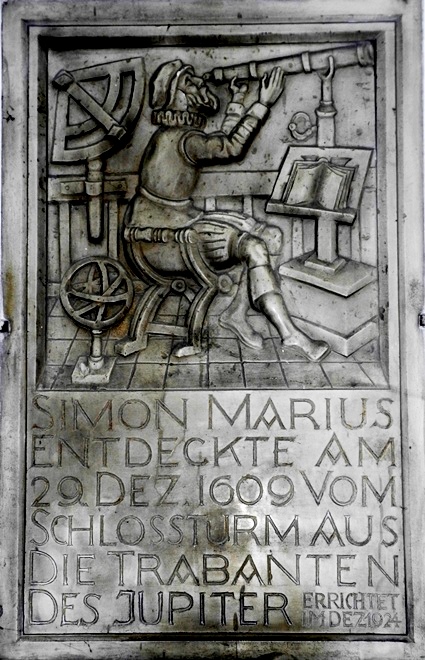 SIMON MARIUS
ENTDECKTE AM
29. DEZ. 1609 VOM
SCHLOSSTURM AUS
DIE TRABANTEN
DES JUPITER ERRICHTET
IM DEZ. 1924